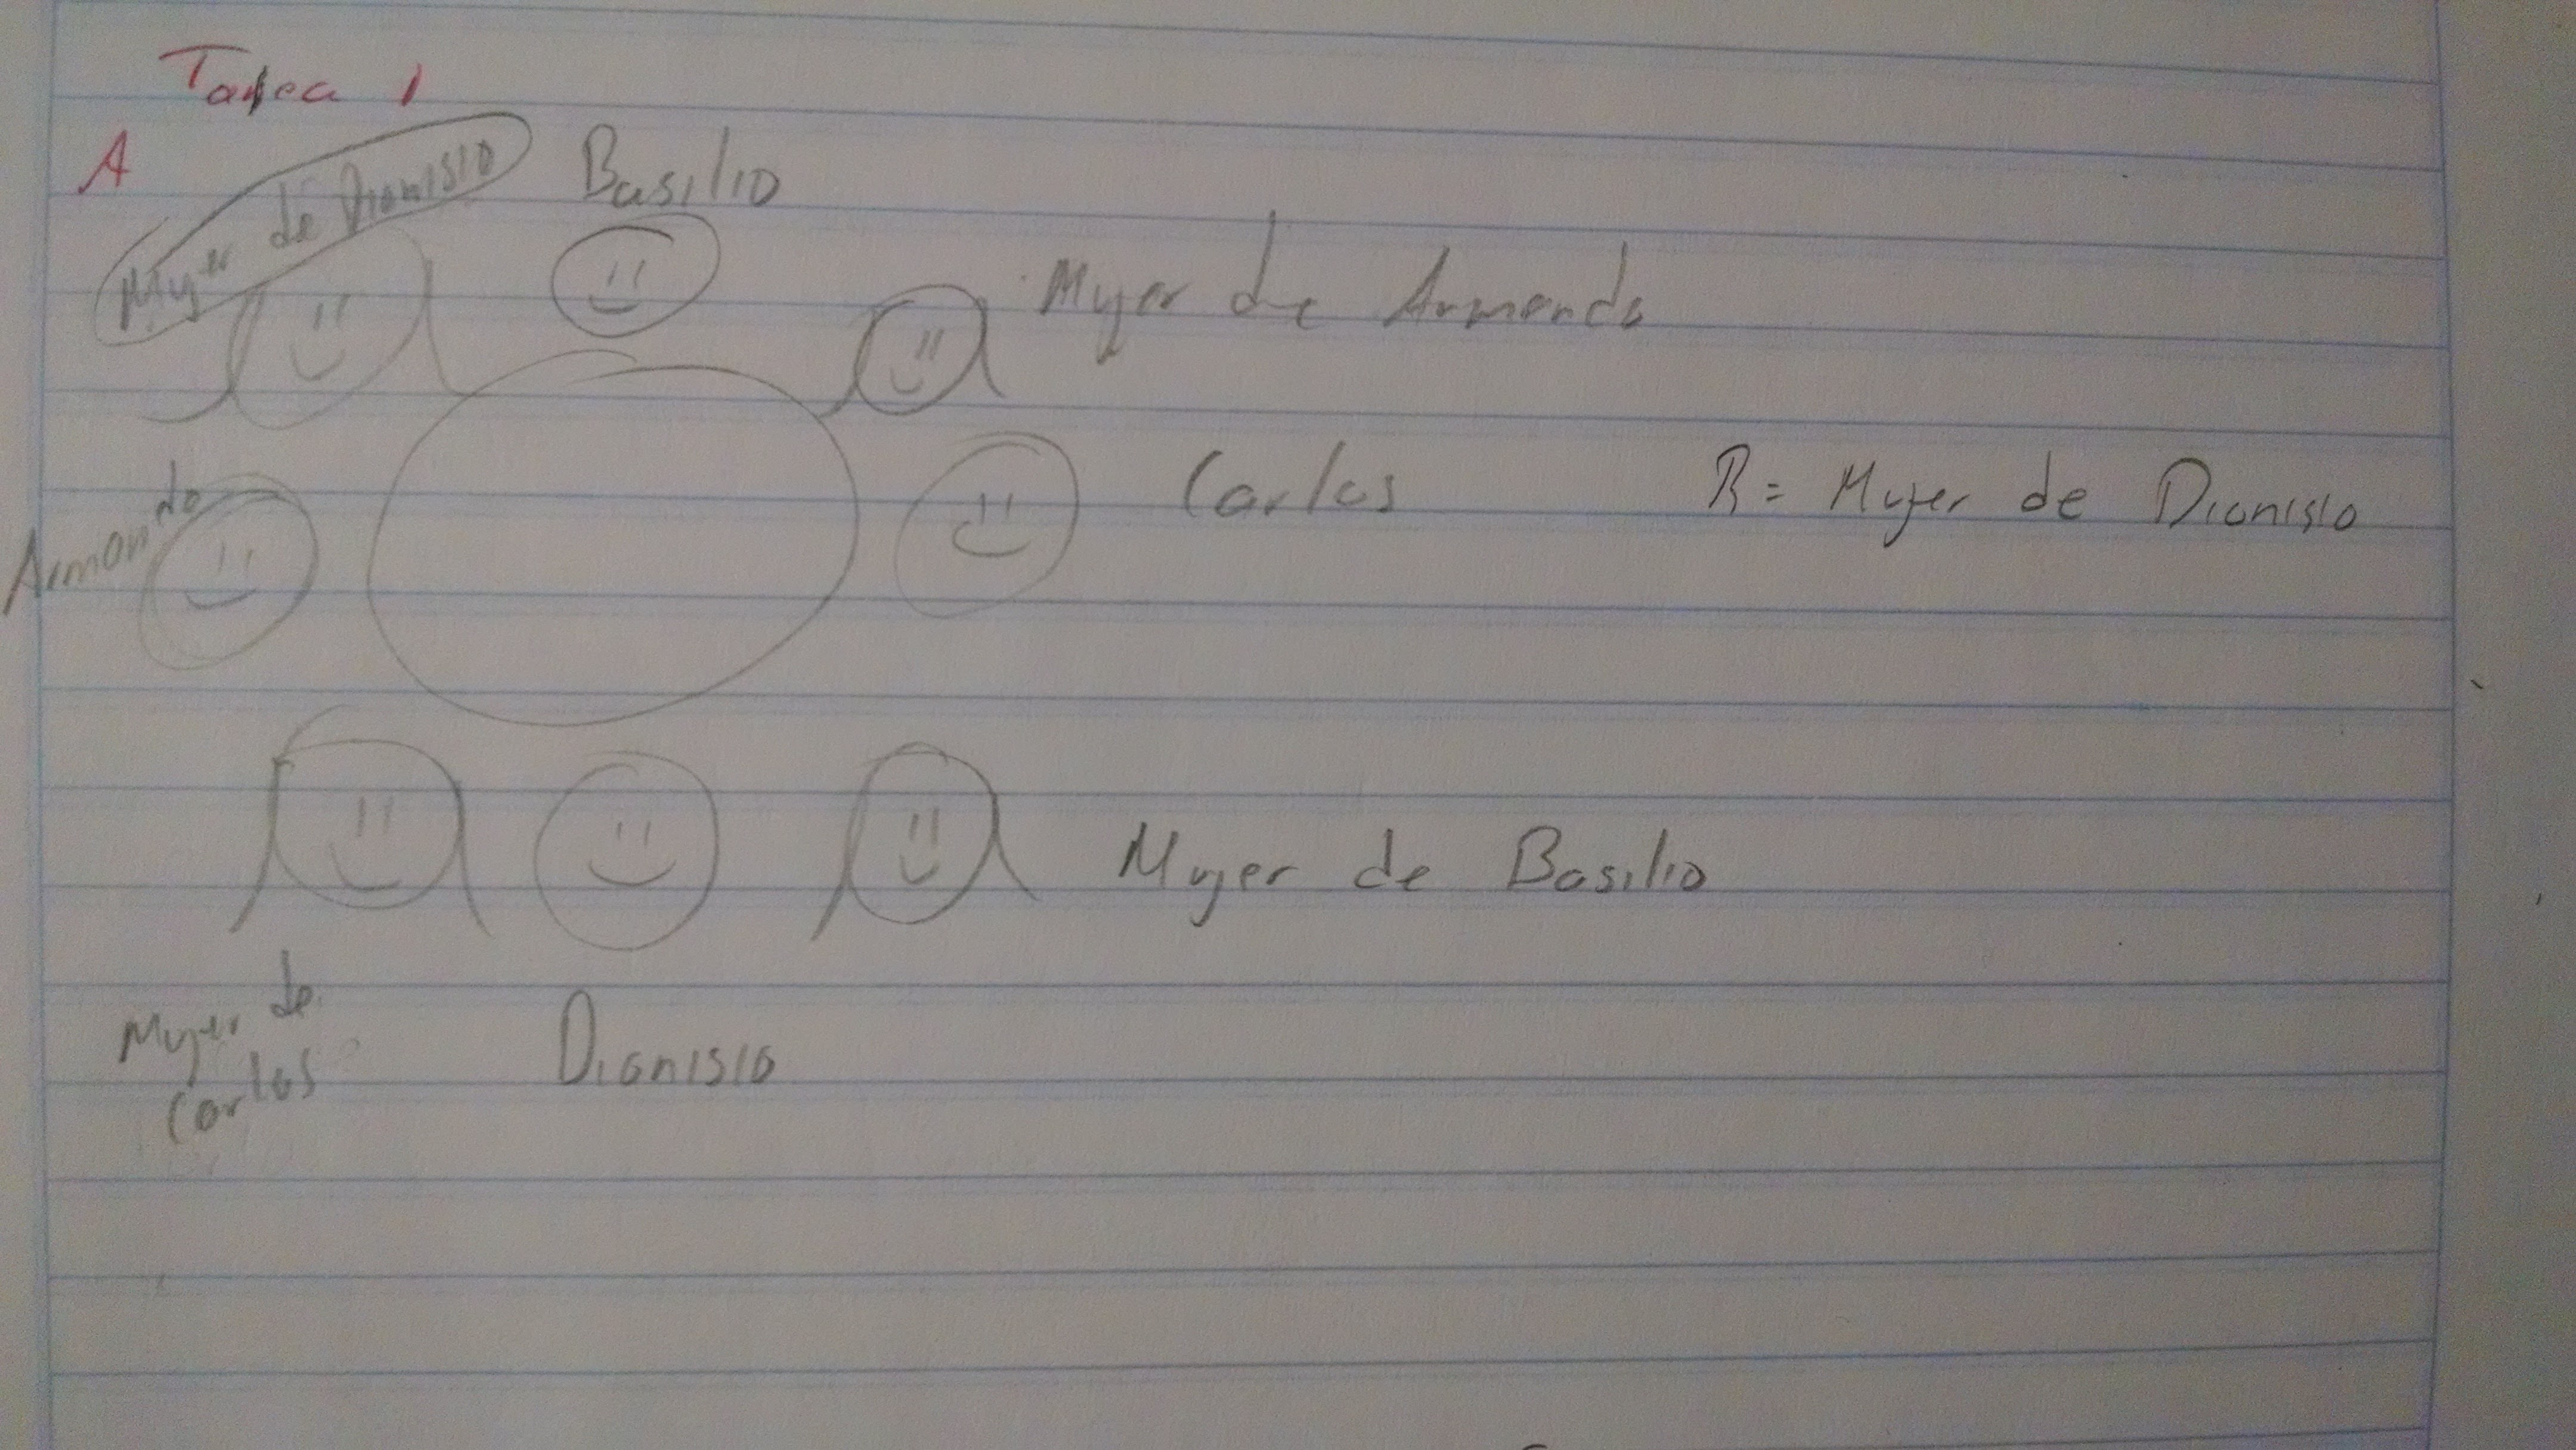 Tarea 1
A
Mujer de Dionisio
Basilio
Mujer de Armando
Armando
Carlos
R= Mujer de Dionisio
Mujer de Basilio
Mujer de
Carlos
Dionisio